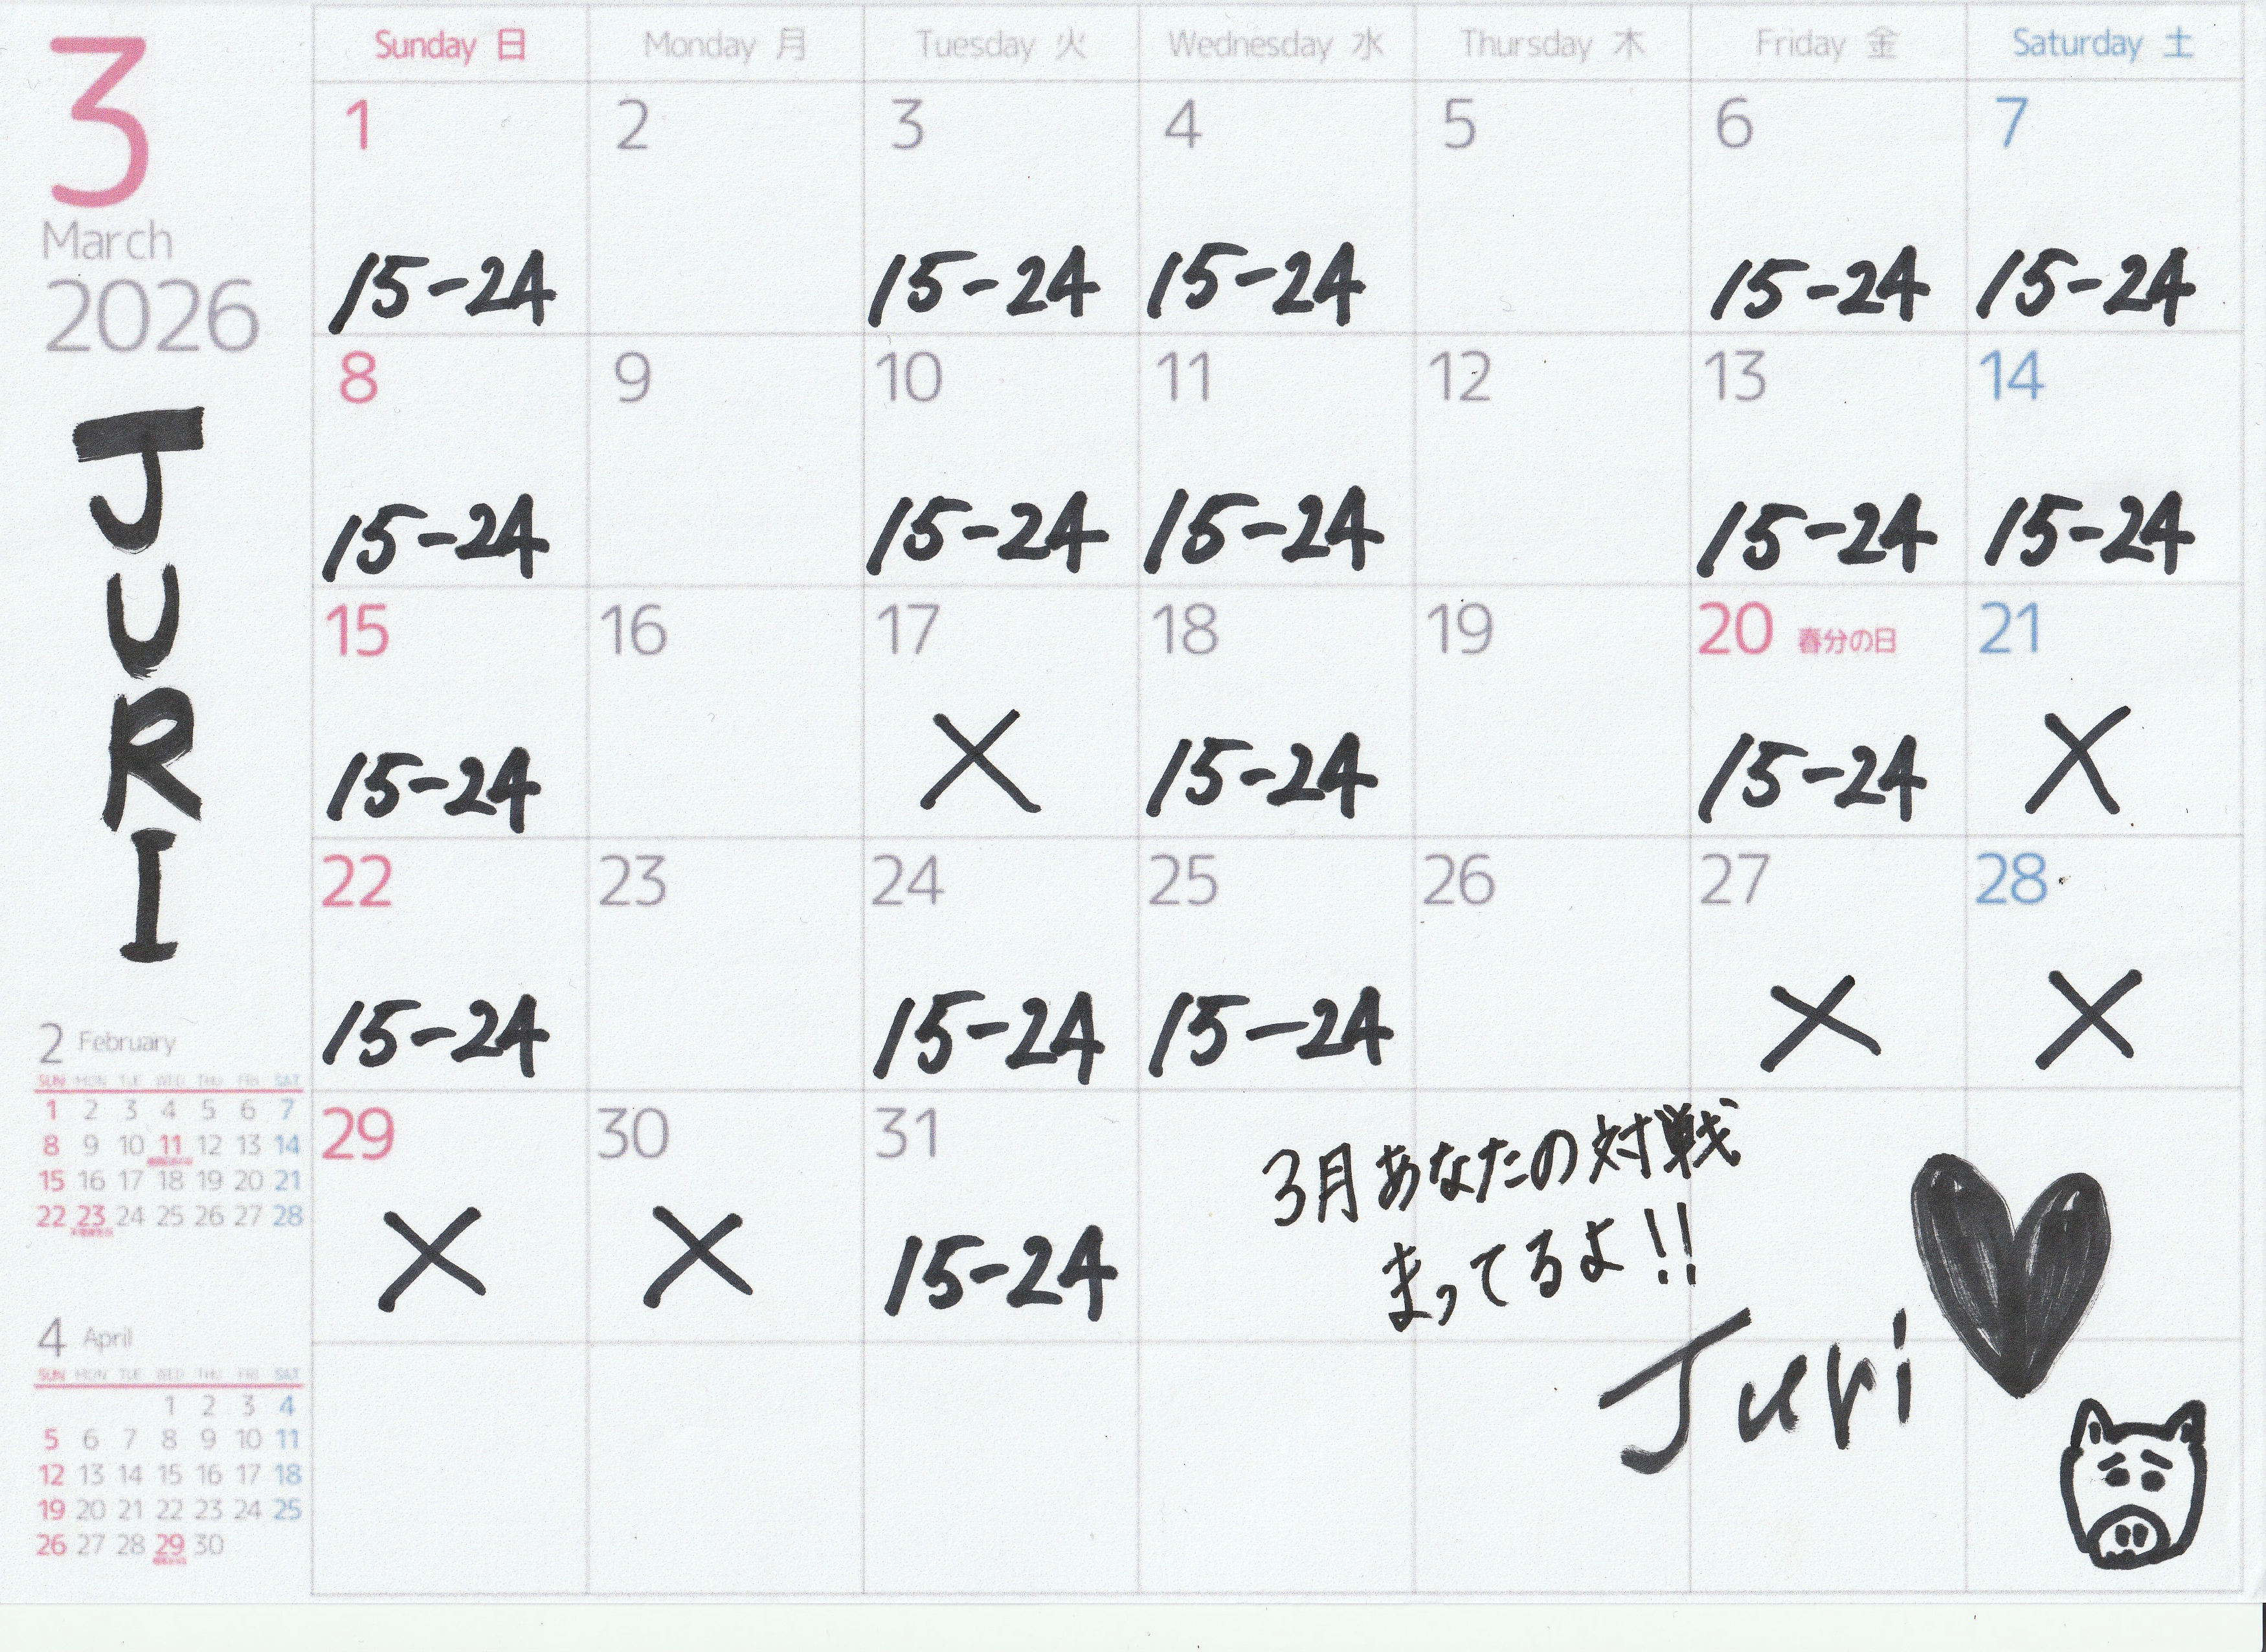 3
March
2026
JURI
Sunday 日 Monday 月 Tuesday 火 Wednesday 水 Thursday 木 Friday 金 Saturday 土
1 2 3 4 5 6 7
15-24 15-24 15-24 15-24 15-24
8 9 10 11 12 13 14
15-24 15-24 15-24 15-24 15-24
15 16 17 18 19 20 春分の日 21
15-24 × 15-24 15-24 ×
22 23 24 25 26 27 28
15-24 15-24 15-24 × ×
29 30 31
× × 15-24
3月あなたの対戦
まってるよ!!
Juri
2 February
SUN MON TUE WED THU FRI SAT
1 2 3 4 5 6 7
8 9 10 11 12 13 14
15 16 17 18 19 20 21
22 23 24 25 26 27 28
4 April
SUN MON TUE WED THU FRI SAT
1 2 3 4
5 6 7 8 9 10 11
12 13 14 15 16 17 18
19 20 21 22 23 24 25
26 27 28 29 30